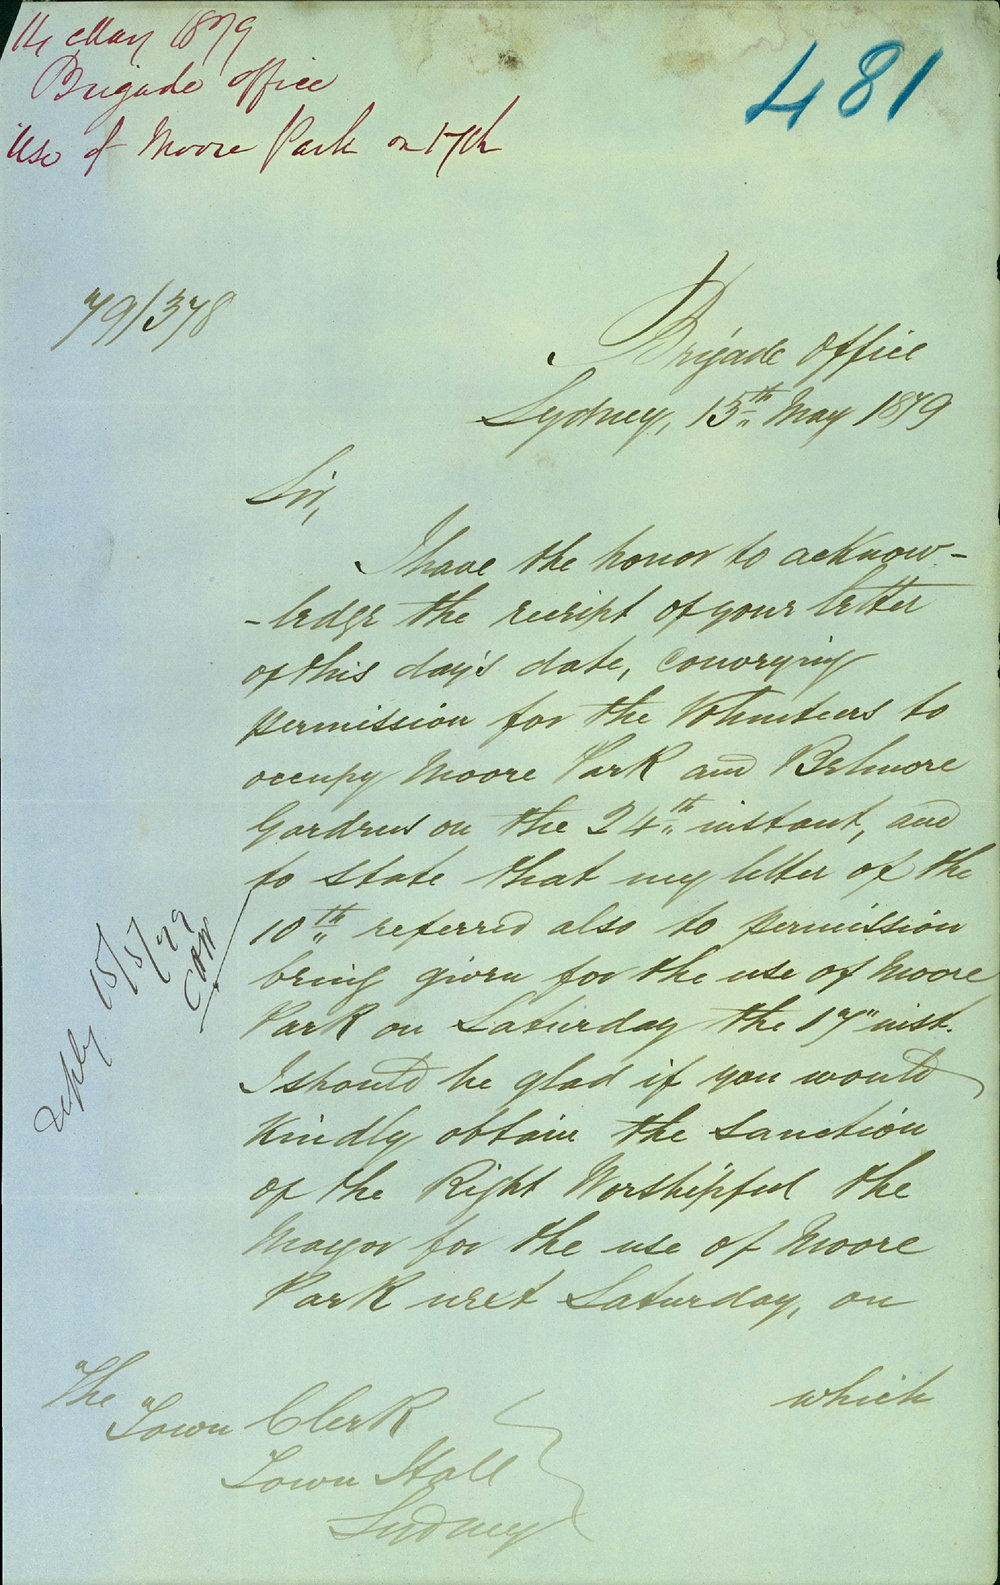 14 May 1879
Brigade Office
Use of Moore Park on 17th
481
79/378
Brigade Office
Sydney, 15th May 1879
Sir,
I have the honor to acknow-
-ledge the receipt of your letter
of this day's date, conveying
permission for the Volunteers to
occupy Moore Park and Belmore
Gardens on the 24th instant, and
to state that my letter of the
10th referred also to permission
being given for the use of Moore
Park on Saturday the 17" inst.
I should be glad if you would
kindly obtain the sanction
of the Right Worshipful the
Mayor for the use of Moore
Park next Saturday, on
which
reply 15/5/79
The
Town Clerk
Town Hall
Sydney